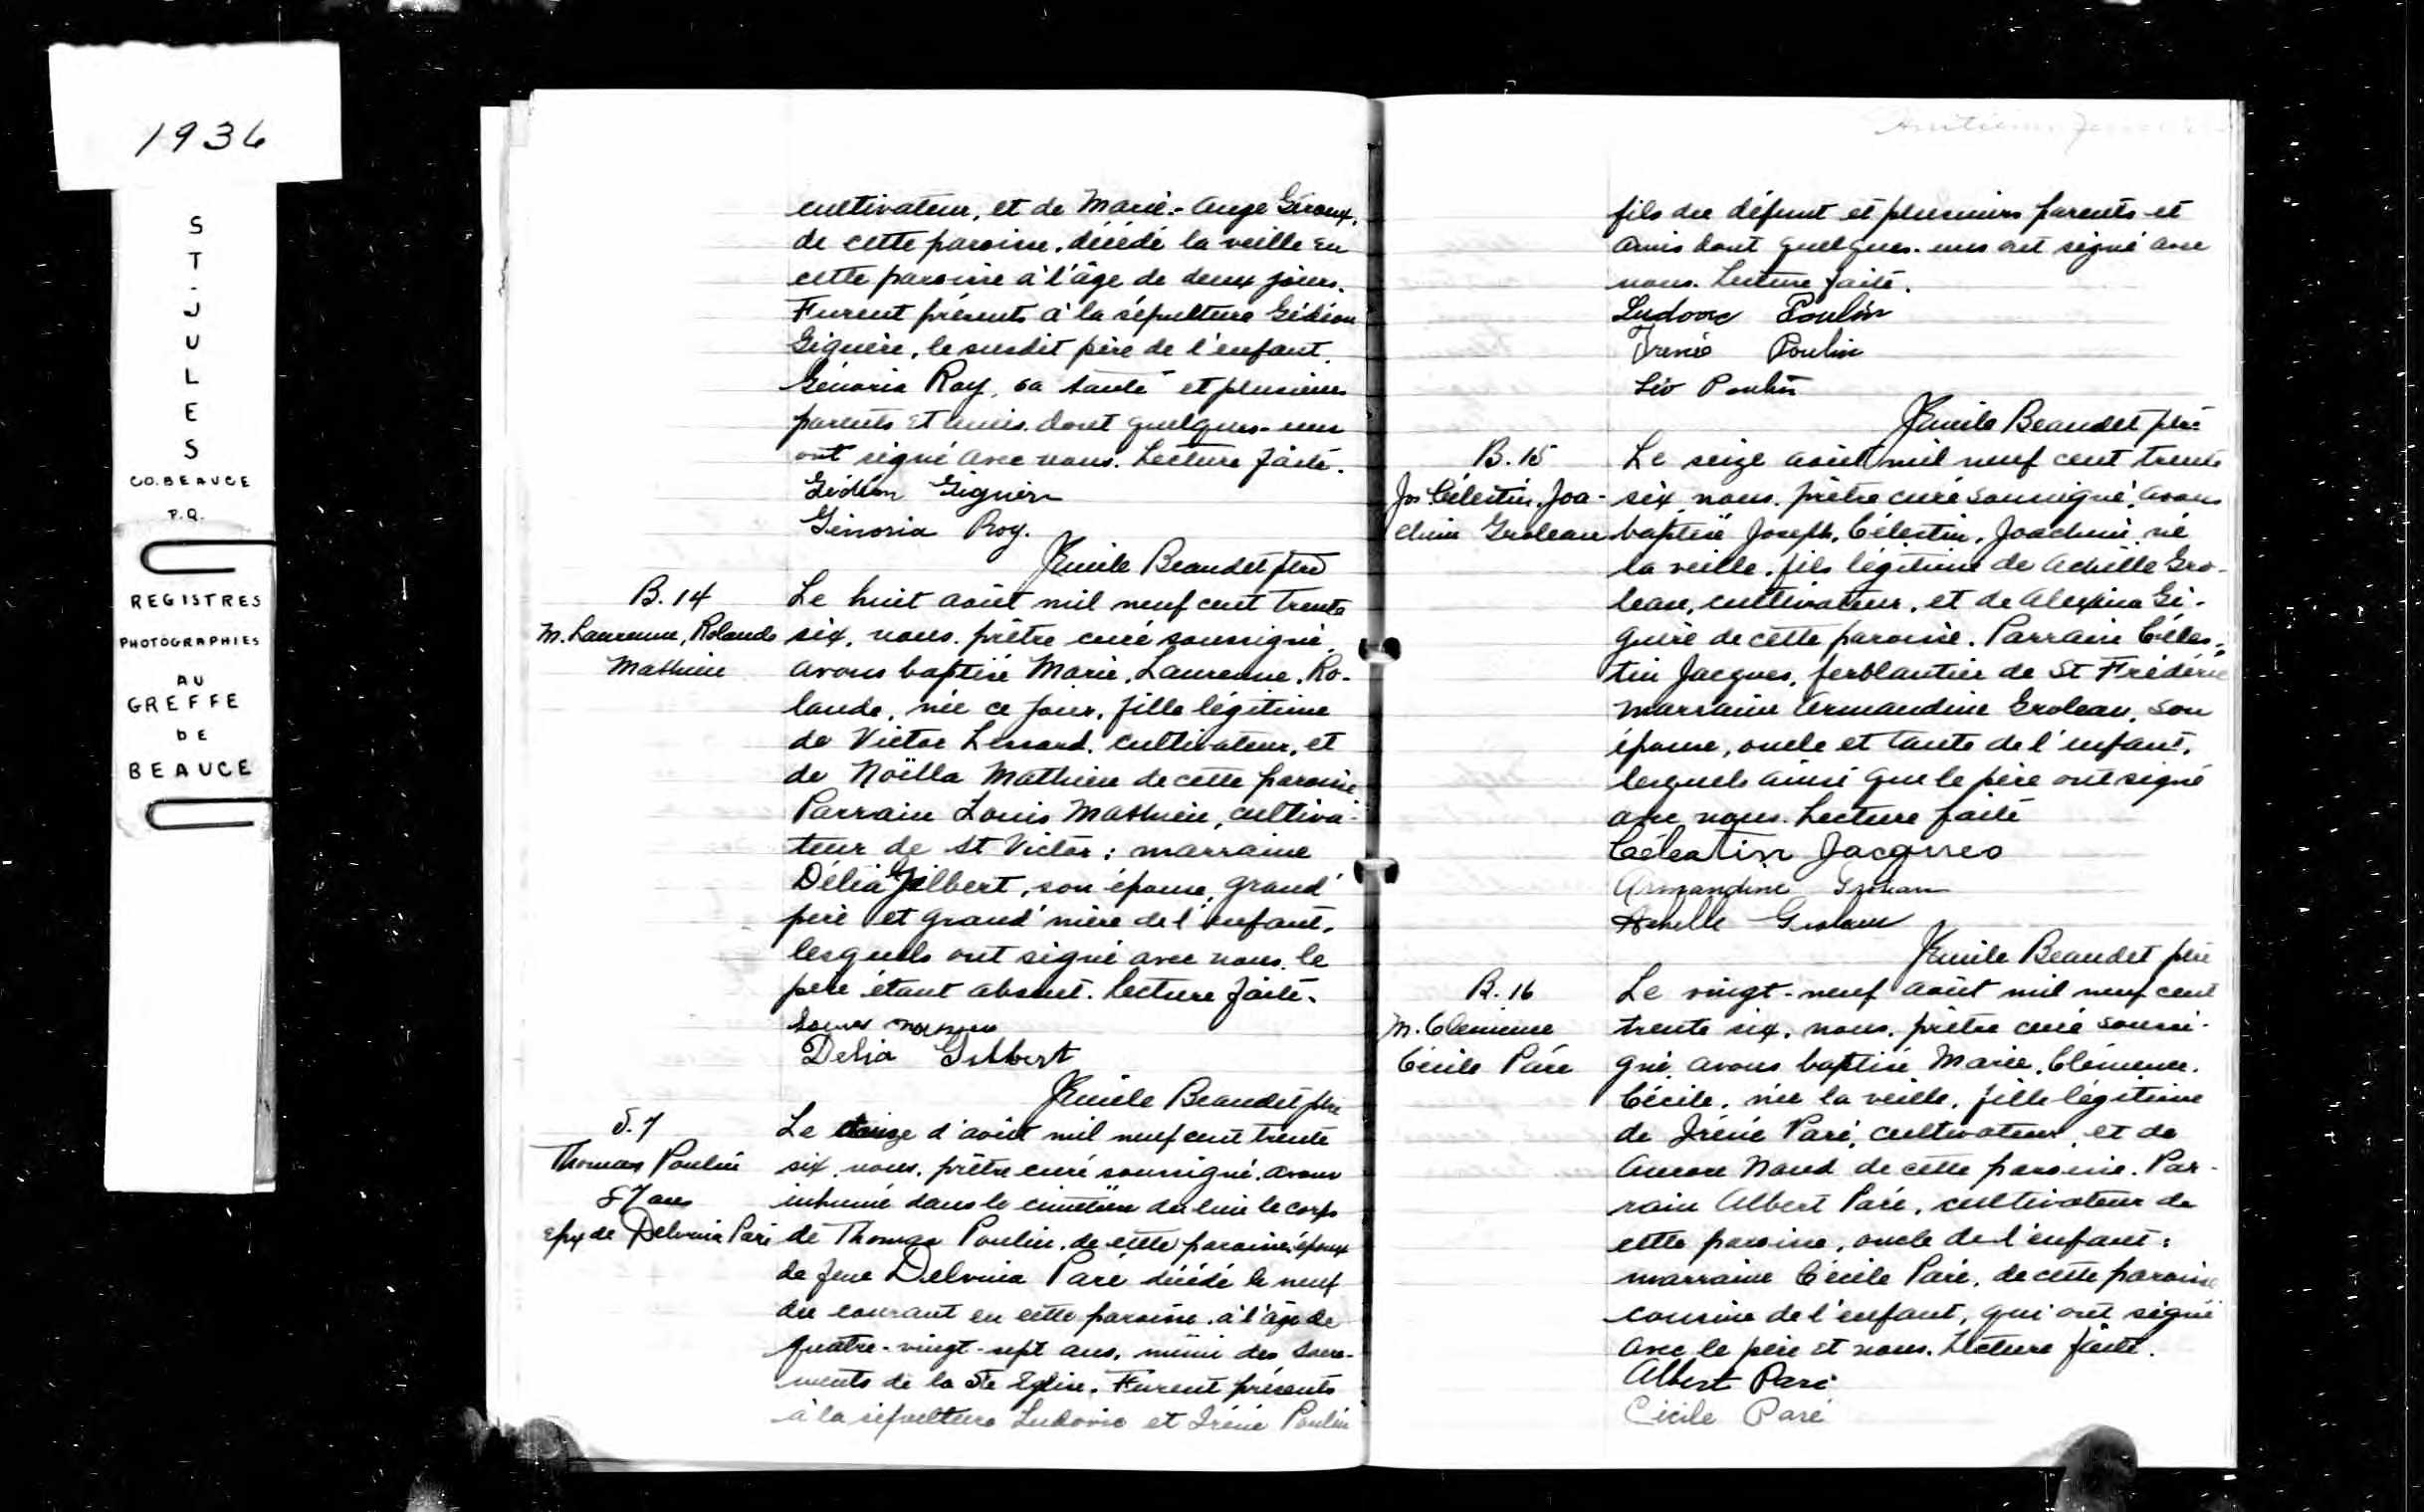 1936
ST-JULES
CO. BEAUCE
P.Q.
REGISTRES
PHOTOGRAPHIES
AU
GREFFE
DE
BEAUCE
cultivateur, et de Marie-Ange Giroux,
de cette paroisse, décédé la veille en
cette paroisse à l'âge de deux jours.
Furent présents à la sépulture Gédéon
Giguère, le susdit père de l'enfant,
Génoria Roy, sa tante et plusieurs
parents et amis dont quelques-uns
ont signé avec nous. Lecture faite.
Gédéon Giguère
Génoria Roy.
JEmile Beaudet ptre
B. 14
M. Laurenne, Rolande
Mathieu
Le huit août mil neuf cent trente
six, nous, prêtre curé soussigné,
avons baptisé Marie, Laurenne, Ro-
lande, née ce jour, fille légitime
de Victor Lessard, cultivateur, et
de Noëlla Mathieu de cette paroisse
Parrain Louis Mathieu, cultiva-
teur de St Victor; marraine
Délia Gilbert, son épouse, grand'
père et grand'mère de l'enfant,
lesquels ont signé avec nous, le
père étant absent. Lecture faite.
Louis
Delia Gilbert
JEmile Beaudet ptre
S. 7
Thomas Poulin
87 ans
Epx de Delvina Paré
Le d'août mil neuf cent trente
six, nous, prêtre curé soussigné, avons
inhumé dans le cimetière du lieu le corps
de Thomas Poulin, de cette paroisse, époux
de feue Delvina Paré décédé le neuf
du courant en cette paroisse, à l'âge de
quatre-vingt-sept ans, muni des Sacre-
ments de la Ste Eglise. Furent présents
à la sépulture Ludovic et Irénée Poulin
fils du défunt et plusieurs parents et
amis dont quelques-uns ont signé avec
nous. Lecture faite.
Ludovic Poulin
Irenée Poulin
Léo Poulin
JEmile Beaudet ptre
B. 15
Jos Célestin, Joa-
chim Groleau
Le seize août mil neuf cent trente
six, nous, prêtre curé soussigné, avons
baptisé Joseph, Célestin, Joachim, né
la veille, fils légitime de Achille Gro-
leau, cultivateur, et de Alexina Gi-
guère de cette paroisse. Parrain Céles-
tin Jacques, ferblantier de St Frédéric
marraine Armandine Groleau, son
épouse, oncle et tante de l'enfant,
lesquels ainsi que le père ont signé
avec nous. Lecture faite
Célestin Jacques
Armandine Groleau
Achille Groleau
JEmile Beaudet ptre
B. 16
M. Clémence
Cécile Paré
Le vingt-neuf août mil neuf cent
trente six, nous, prêtre curé soussi-
gné, avons baptisé Marie, Clémence,
Cécile, née la veille, fille légitime
de Irénée Paré, cultivateur, et de
Aurore Naud de cette paroisse. Par-
rain Albert Paré, cultivateur de
cette paroisse, oncle de l'enfant;
marraine Cécile Paré, de cette paroisse
cousine de l'enfant, qui ont signé
avec le père et nous. Lecture faite.
Albert Paré
Cécile Paré